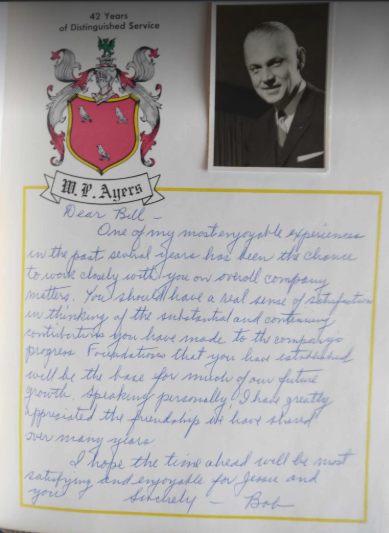 42 Years
of Distinguished Service
W. P. Ayers
Dear Bill –
One of my most enjoyable experiences
in the past several years has been the chance
to work closely with you on overall company
matters. You should have a real sense of satisfaction
in thinking of the substantial and continuing
contributions you have made to the company's
progress. Foundations that you have established
will be the base for much of our future
growth. Speaking personally, I have greatly
appreciated the friendship we have shared
over many years.
I hope the time ahead will be most
satisfying and enjoyable for Jessie and
you. Sincerely – Bob